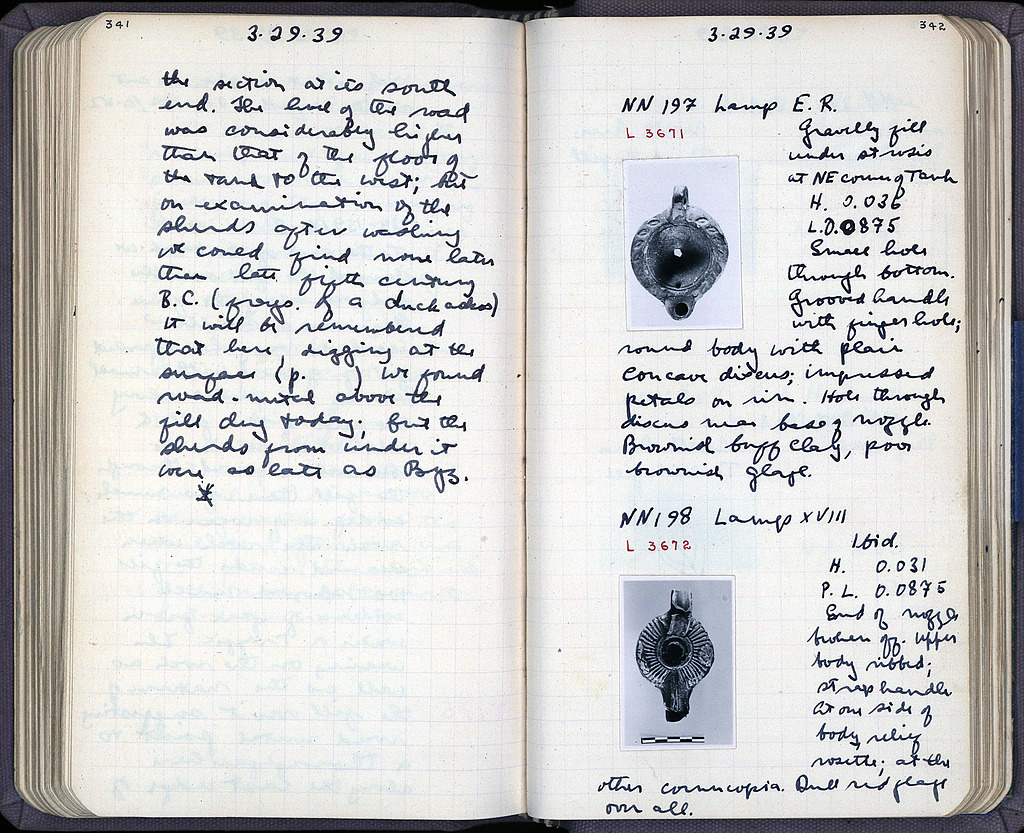 341
3·29·39
the section at its south
end. The level of the road
was considerably higher
than that of the floor of
the tank to the west; but
on examination of the
sherds after washing
we could find none later
than late fifth century
B.C. (frags. of a duck askos)
It will be remembered
that here, digging at the
surface (p. ) we found
road-metal above the
fill dug today; but the
sherds from under it
were so late as Byz.
342
3·29·39
NN 197 Lamp E. R.
L 3671
Gravelly fill
under strosis
at NE corner of Tank
H. 0.036
L.D. 0.0875
Small hole
through bottom.
Grooved handle
with finger hole;
round body with plain
concave discus; impressed
petals on rim. Hole through
discus near base of nozzle.
Brownish buff clay, poor
brownish glaze.
NN 198 Lamp XVIII
L 3672
Ibid.
H. 0.031
P. L. 0.0875
End of nozzle
broken off. Upper
body ribbed;
strap handle
At one side of
body relief
rosette; at the
other cornucopia. Dull red glaze
over all.